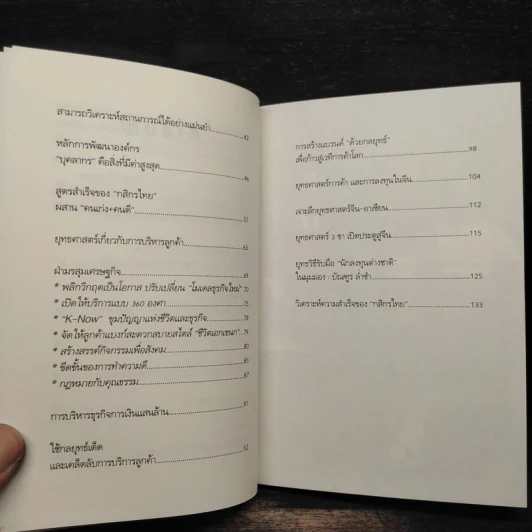 สามารถวิเคราะห์สถานการณ์ได้อย่างแม่นยำ...............42
หลักการพัฒนาองค์กร
"บุคลากร" คือสิ่งที่มีค่าสูงสุด...............46
สูตรสำเร็จของ "กสิกรไทย"
ผสาน "คนเก่ง+คนดี"...............51
ยุทธศาสตร์เกี่ยวกับการบริหารลูกค้า...............63
ฝ่ามรสุมเศรษฐกิจ...............69
* พลิกวิกฤตเป็นโอกาส ปรับเปลี่ยน "โมเดลธุรกิจใหม่" 70
* เปิดให้บริการแบบ 360 องศา...............75
* "K-Now" ขุมปัญญาแห่งชีวิตและธุรกิจ...............78
* จัดให้ลูกค้าแบงก์สะดวกสบายสไตล์ "ชีวิตเอกเขนก" 79
* สร้างสรรค์กิจกรรมเพื่อสังคม...............80
* ขีดขั้นของการทำความดี...............85
* กฎหมายกับคุณธรรม...............87
การบริหารธุรกิจการเงินแสนล้าน...............91
ใช้กลยุทธ์เด็ด
และเคล็ดลับการบริการลูกค้า...............92
การสร้างแบรนด์ "ด้วยกลยุทธ์"
เพื่อก้าวสู่เวทีการค้าโลก...............98
ยุทธศาสตร์การค้า และการลงทุนในจีน...............104
เจาะลึกยุทธศาสตร์จีน-อาเซียน...............112
ยุทธศาสตร์ 3 ขา เปิดประตูสู่จีน...............115
ยุทธวิธีรับมือ "นักลงทุนต่างชาติ"
ในมุมมอง : บัณฑูร ล่ำซำ...............125
วิเคราะห์ความสำเร็จของ "กสิกรไทย"...............133